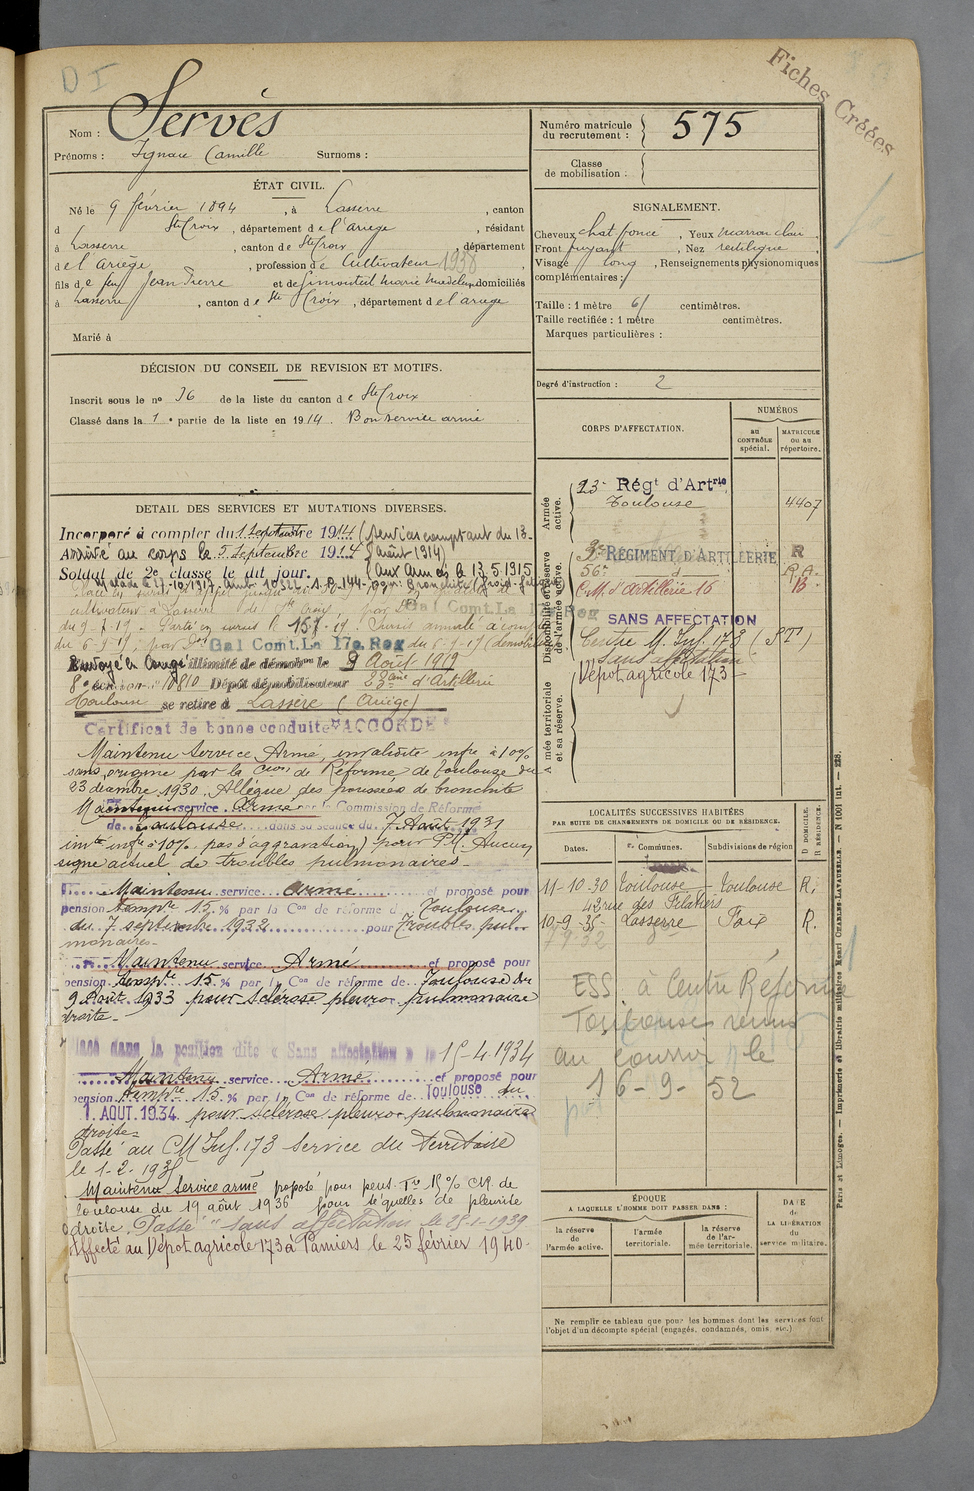 D I
Fiches Créées
Nom : Servès
Prénoms : Ignace Camille Surnoms :
Numéro matricule du recrutement : 575
Classe de mobilisation :
ÉTAT CIVIL.
Né le 9 février 1894, à Lasserre, canton
d Ste Croix, département de l'Ariège, résidant
à Lasserre, canton de Ste Croix, département
de l'Ariège, profession de Cultivateur 1938
fils de feu Jean Pierre et de Marie domiciliés
à Lasserre, canton de Ste Croix, département de l'ariège
Marié à
SIGNALEMENT.
Cheveux chat foncé, Yeux marron clair,
Front fuyant, Nez rectiligne
Visage long, Renseignements physionomiques
complémentaires :
Taille : 1 mètre 61 centimètres.
Taille rectifiée : 1 mètre centimètres.
Marques particulières :
Degré d'instruction : 2
DÉCISION DU CONSEIL DE REVISION ET MOTIFS.
Inscrit sous le no 36 de la liste du canton de Ste Croix
Classé dans la 1e partie de la liste en 1914. Bon service armé
CORPS D'AFFECTATION.
NUMÉROS
au CONTRÔLE spécial.
MATRICULE ou au répertoire.
Armée active.
23e Régt d'Artrie
Toulouse 4407
Disponibilité et réserve de l'armée active.
RÉGIMENT D'ARTILLERIE R
56e d R.A.
C.M. d'artillerie 16 B
SANS AFFECTATION
Centre M. Inf. 173 (ST)
Sans affectation
Dépot agricole 173
Armée territoriale et sa réserve.
DETAIL DES SERVICES ET MUTATIONS DIVERSES.
Incorporé à compter du 1 septembre 1914 (services comptant du 13
Arrivé au corps le 5 septembre 1914 août 1914)
Soldat de 2e classe le dit jour. (Aux Armées le 13.5.1915
cultivateur à Lasserre Ste Croix, par Gal Comt. La 17e Reg
Gal Comt. La 17e Reg
Envoyé en congé illimité de démobon le 9 Août 1919
8e échelon no 10810 Dépôt démobilisateur 23eme d'Artillerie
Toulouse se retire à Lassère (Ariège)
Certificat de bonne conduite "ACCORDÉ"
Maintenu Service Armé, invalidité infre à 10%
sans origine par la Cion de Réforme de Toulouse du
23 décembre 1930. Allègue des poussées de bronchite
Maintenu service Armé par la Commission de Réforme
de Toulouse dans sa séance du 7 Août 1931
invté infre à 10% pas d'aggravation pour P.M. Aucun
signe actuel de troubles pulmonaires
Maintenu service armé et proposé pour
pension tempre 15 % par la Con de réforme de Toulouse
du 7 septembre 1932 pour Troubles pul-
monaires
Maintenu service Armé et proposé pour
pension tempre 15 % par la Con de réforme de Toulouse du
9 Août 1933 pour sclérose pleuro-pulmonaire
droite
Placé dans la position dite « Sans affectation » le 15-4-1934
Maintenu service Armé et proposé pour
pension tempre 15 % par la Con de réforme de Toulouse du
1. AOUT. 1934 pour sclérose pleuro-pulmonaire
droite
Passé au CM Inf. 173 service du Territoire
le 1-2-193
Maintenu service armé proposé pour pens. Tre 15% CR. de
Toulouse du 19 août 1936 pour séquelles de pleurite
droite. Passé "sans affectation" le 25-1-1939
Affecté au Dépot agricole 173 à Pamiers le 25 février 1940
LOCALITÉS SUCCESSIVES HABITÉES
PAR SUITE DE CHANGEMENTS DE DOMICILE OU DE RÉSIDENCE.
Dates. Communes. Subdivisions de région D DOMICILE. R RÉSIDENCE.
11-10-30 Toulouse Toulouse R.
42 rue des Filatiers
10-9-35 Lasserre Foix R.
7 9-32
ESS à Centre Réforme
Toulouse reçu
au courrier le
16-9-52
ÉPOQUE
A LAQUELLE L'HOMME DOIT PASSER DANS :
la réserve de l'armée active.
l'armée territoriale.
la réserve de l'armée territoriale.
DATE de LA LIBÉRATION du service militaire.
Ne remplir ce tableau que pour les hommes dont les services font
l'objet d'un décompte spécial (engagés, condamnés, omis, etc.)
Paris et Limoges. — Imprimerie et librairie militaires Henri CHARLES-LAVAUZELLE. — N 1001 int. — 228.